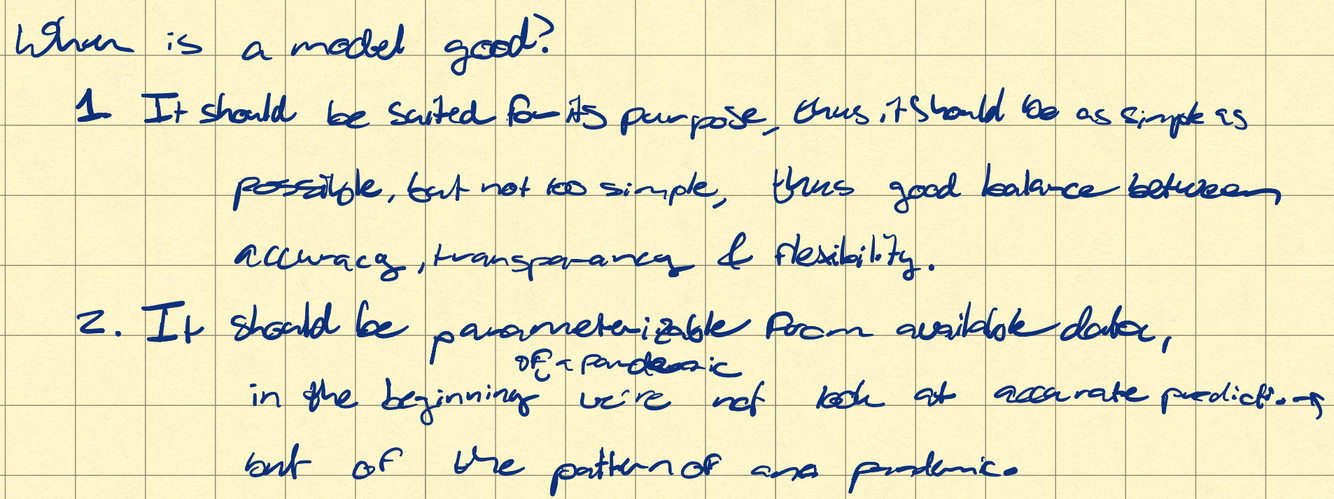 When is a model good?
1 It should be suited for its purpose, thus it should be as simple as
possible, but not too simple, thus good balance between
accuracy, transparancy & flexibility.
2. It should be parameterizable from available data,
of a pandemic
in the beginning we're not look at accurate prediction
but of the pattern of pandemic.